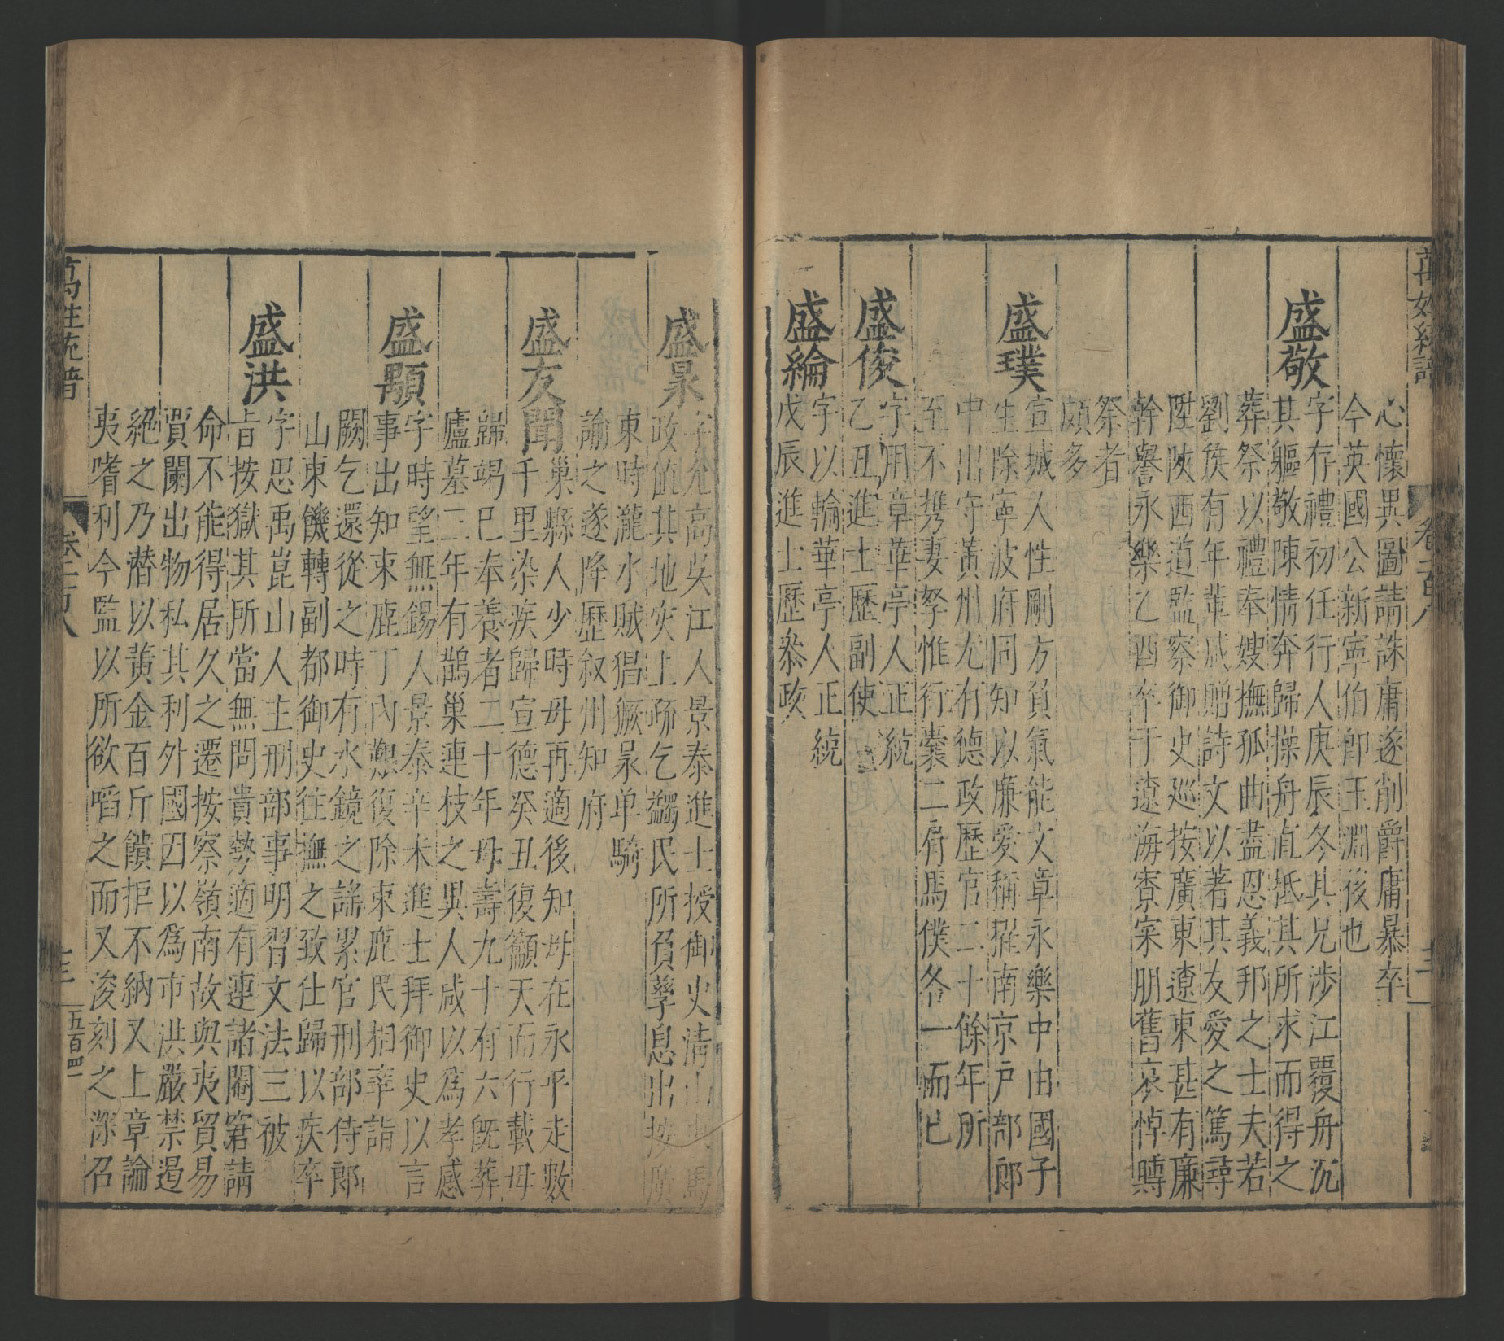 心懷異圖請誅庸遂削爵庸暴卒
今英國公新寧伯卽玉淵孩也
盛敬
字存禮初任行人庚辰冬其兄涉江覆舟沉
其軀敬陳情奔歸操舟直抵其所求而得之
葬祭以禮奉嫂撫孤曲盡恩義邢之士夫若
劉侯有年輩咸贈詩文以著其友愛之篤尋
陞陜西道監察御史巡按廣東遼東甚有廉
幹譽永樂乙酉卒于遼海寮寀朋舊哀悼轉
祭者
頗多
盛璞
宣城人性剛方負氣能文章永樂中由國子
生除寧波府同知以廉愛稱擢南京戶部郎
中出守黃州尤有德政歷官二十餘年所
至不携妻孥惟行橐二肩馬僕各一而已
盛俊
字用章華亭人正統
乙丑進士歷副使
盛綸
字以輪華亭人正統
戊辰進士歷叅政
盛杲
字允高吳江人景泰進士授御史淸山
政值其地災上疏乞蠲民所負孳息出按廣
東時瀧水賊猖獗杲单騎
諭之遂降歷叙州知府
盛友聞
巢縣人少時母再適後知母在永平走數
千里染疾歸宣德癸丑復籲天而行載母
歸竭已奉養者二十年母壽九十有六旣葬
廬墓二年有鵲巢連枝之異人咸以爲孝感
盛顒
字時望無錫人景泰辛未進士拜御史以言
事出知束鹿丁內艱復除束鹿民相率詣
闕乞還從之時有水鏡之謠累官刑部侍郎
山東饑轉副都御史往撫之致仕歸以疾卒
盛洪
字思禹崑山人主刑部事明習文法三被
㫖按獄其所當無問貴勢適有連諸閹窘請
命不能得居久之遷按察嶺南故與夷貿易
賈闌出物私其利外國因以爲市洪嚴禁遏
絕之乃潛以黃金百斤饋拒不納又上章論
夷嗜利今監以所欲啗之而又浚刻之深召
萬姓統譜
卷一百八
五百四一